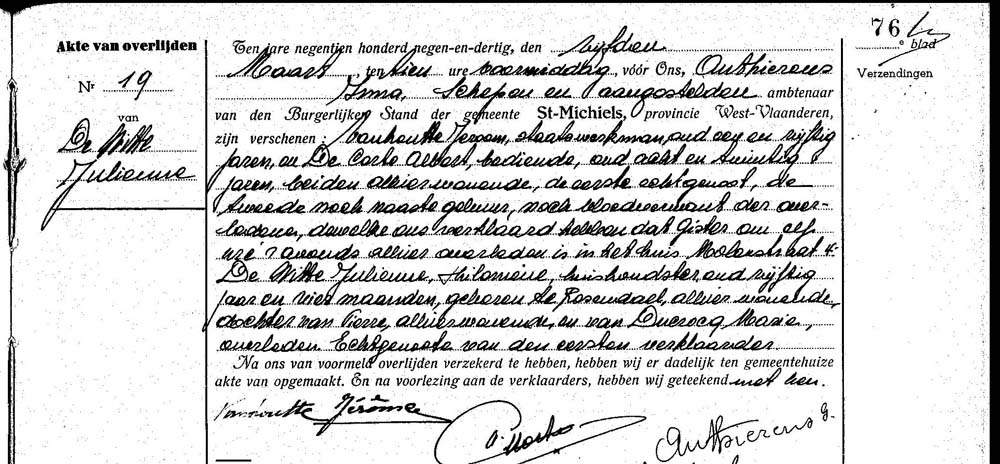 76
° blad
Akte van overlijden
Nr 19
van
De Witte
Julienne
Verzendingen
Ten jare negentien honderd negen-en-dertig, den vijfden
Maart tien ure voormiddag, vóór Ons, Anthierens
Irma, Schepen en aangestelden ambtenaar
van den Burgerlijken Stand der gemeente St-Michiels, provincie West-Vlaanderen,
zijn verschenen : Vanhoutte Jeroom, staatswerkman, oud een en vijftig
jaren, en De Corte Albert, bediende, oud acht en twintig
jaren, beiden alhier wonende, de eerste echtgenoot, de
tweede noch naaste gebuur, noch bloedverwant der over-
ledene, dewelke ons verklaard hebben dat gister om elf
ure 's avonds alhier overleden is in het huis Molenstraat 4.
De Witte Julienne, Philomène, huishoudster, oud vijftig
jaar en vier maanden, geboren te Rosendael, alhier wonende,
dochter van Pierre, alhier wonende, en van Ducrocq Marie,
overleden. Echtgenoote van den eersten verklaarder.
Na ons van voormeld overlijden verzekerd te hebben, hebben wij er dadelijk ten gemeentehuize
akte van opgemaakt. En na voorlezing aan de verklaarders, hebben wij geteekend met hen.
Vanhoutte Jérôme
Anthierens